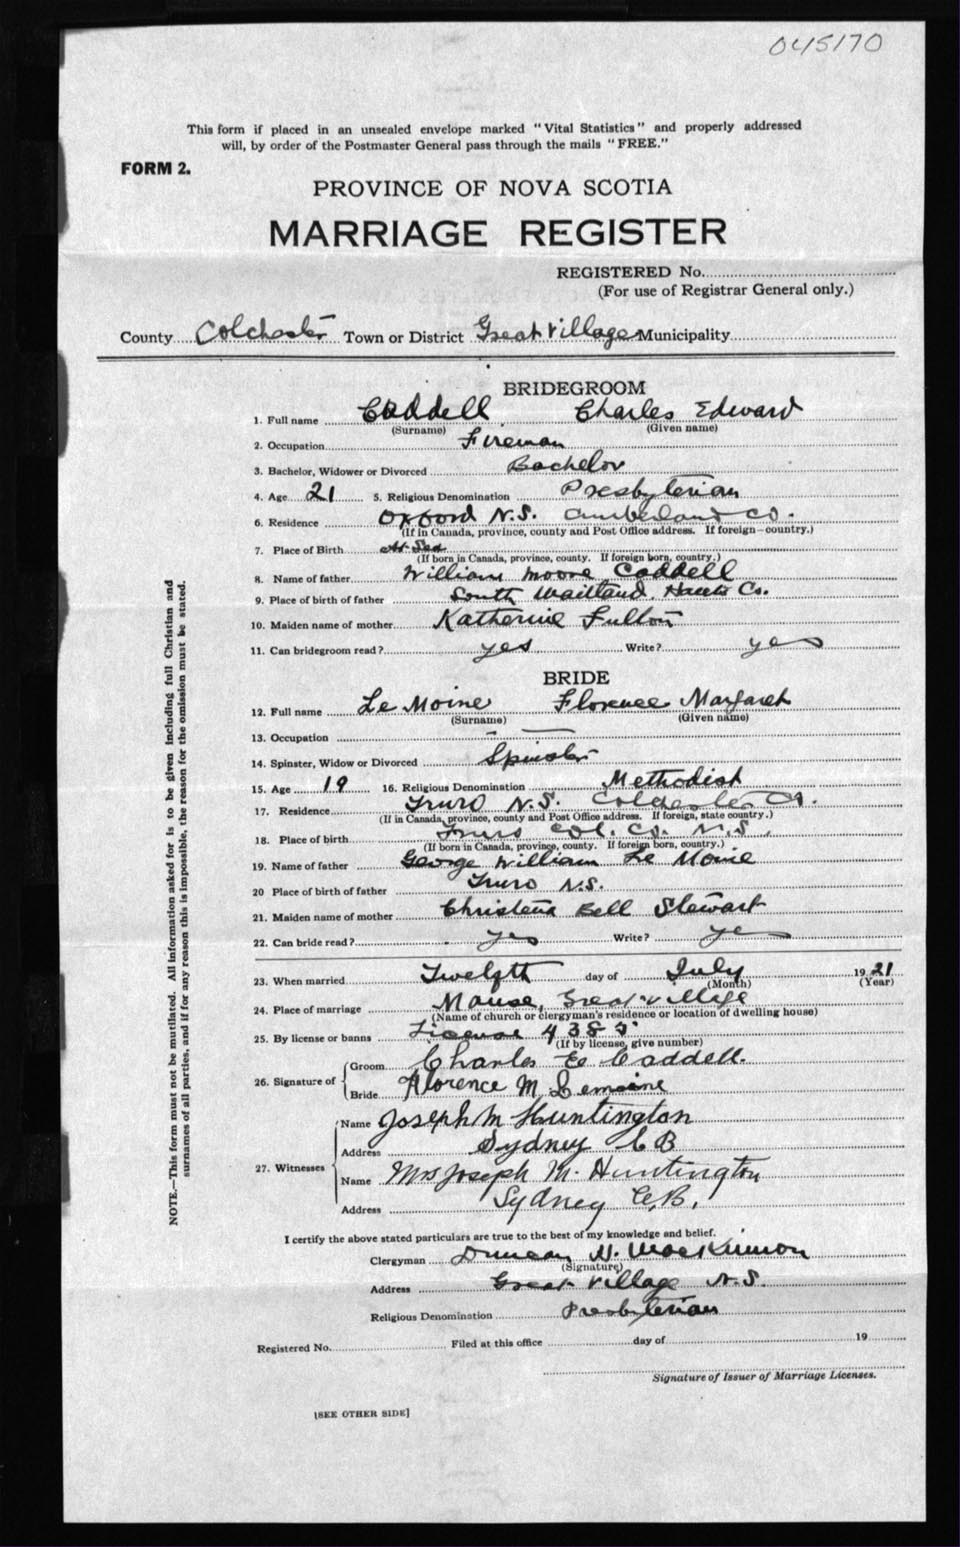 045170
This form if placed in an unsealed envelope marked "Vital Statistics" and properly addressed
will, by order of the Postmaster General pass through the mails "FREE."
FORM 2.
PROVINCE OF NOVA SCOTIA
MARRIAGE REGISTER
REGISTERED No.
(For use of Registrar General only.)
County Colchester Town or District Great Village Municipality
BRIDEGROOM
1. Full name Caddell Charles Edward
(Surname) (Given name)
2. Occupation Fireman
3. Bachelor, Widower or Divorced Bachelor
4. Age 21 5. Religious Denomination Presbyterian
6. Residence Oxford N.S. Cumberland Co.
(If in Canada, province, county and Post Office address. If foreign—country.)
7. Place of Birth At Sea
(If born in Canada, province, county. If foreign born, country.)
8. Name of father William Moore Caddell
9. Place of birth of father South Maitland Hants Co.
10. Maiden name of mother Katherine Fulton
11. Can bridegroom read? yes Write? yes
BRIDE
12. Full name Le Moine Florence Margaret
(Surname) (Given name)
13. Occupation
14. Spinster, Widow or Divorced Spinster
15. Age 19 16. Religious Denomination Methodist
17. Residence Truro N.S. Colchester Co.
(If in Canada, province, county and Post Office address. If foreign, state country.)
18. Place of birth Truro Col. Co. N.S.
(If born in Canada, province, county. If foreign born, country.)
19. Name of father George William Le Moine
20 Place of birth of father Truro N.S.
21. Maiden name of mother Christena Bell Stewart
22. Can bride read? yes Write? yes
23. When married Twelfth day of July 1921
(Month) (Year)
24. Place of marriage Manse, Great Village
(Name of church or clergyman's residence or location of dwelling house)
25. By license or banns License 4385
(If by license, give number)
26. Signature of Groom Charles E Caddell.
Bride Florence M Lemoine
27. Witnesses
Name Joseph M Huntington
Address Sydney C B
Name Mrs Joseph M. Huntington
Address Sydney C.B.
I certify the above stated particulars are true to the best of my knowledge and belief.
Clergyman Duncan N. MacKinnon
(Signature)
Address Great Village N.S.
Religious Denomination Presbyterian
Registered No. Filed at this office day of 19
Signature of Issuer of Marriage Licenses.
[SEE OTHER SIDE]
NOTE.—This form must not be mutilated. All information asked for is to be given including full Christian and
surnames of all parties, and if for any reason this is impossible, the reason for the omission must be stated.